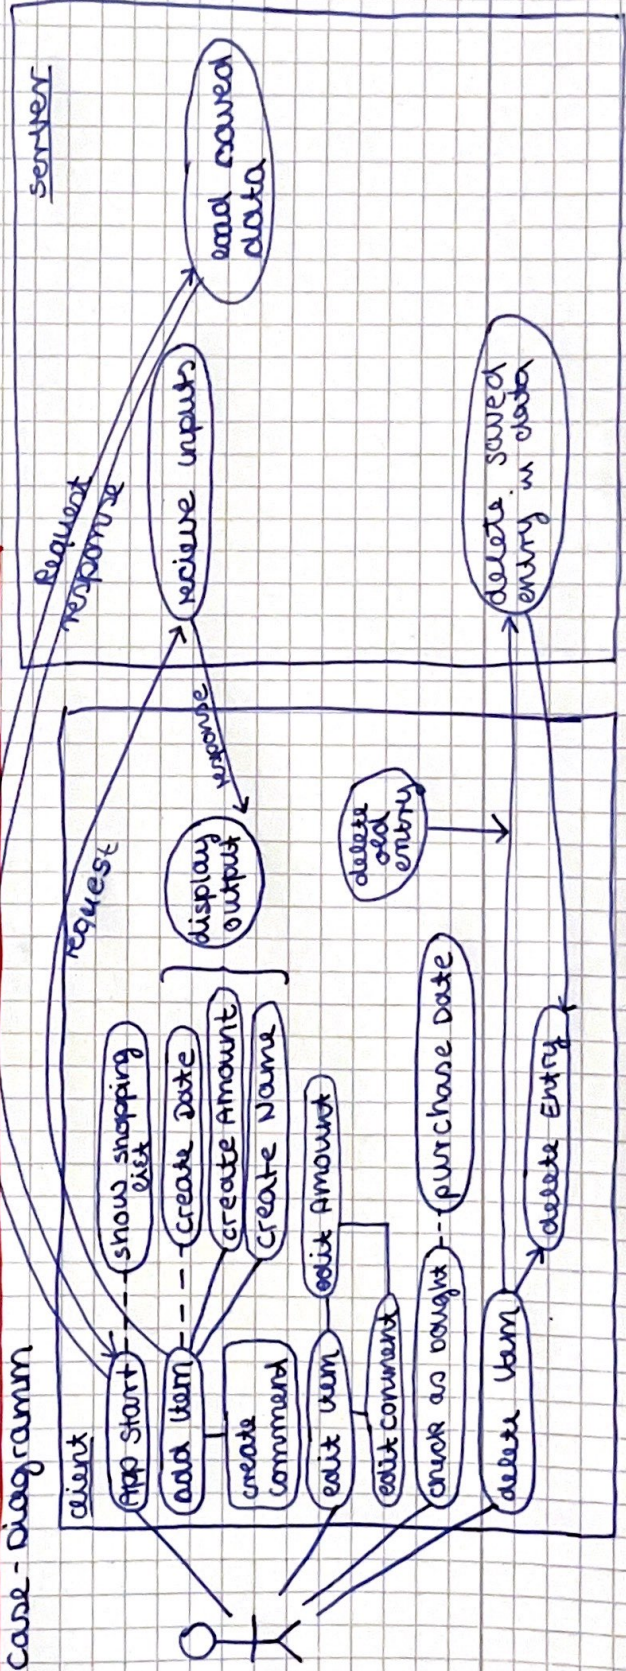 Case-Diagramm
client
App start
show shopping
list
add item
create Date
create Amount
create Name
create
comment
edit item
edit Amount
edit comment
check as bought
purchase Date
delete item
delete Entry
request
display
output
response
delete
old
entry
server
Request
response
recieve inputs
load saved
data
delete saved
entry in data